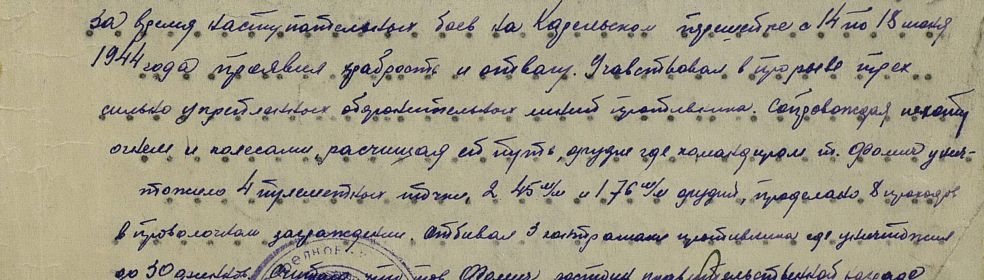 За время наступательных боев на Карельском перешейке с 14 по 18 июня
1944 года проявил храбрость и отвагу. Учавствовал в прорыве трех
сильно укрепленных оборонительных линий противника. Сопровождая пехоту
огнем и колесами, расчищая ей путь, орудие где командиром т. Фомин унич-
тожило 4 пулеметных точки, 2 45 м/м и 1 76 м/м орудий, проделано 8 проходов
в проволочном заграждении. Отбивая 3 контратаки противника где уничтожил
до 30 финнов. Фомин достоин правительственной награде